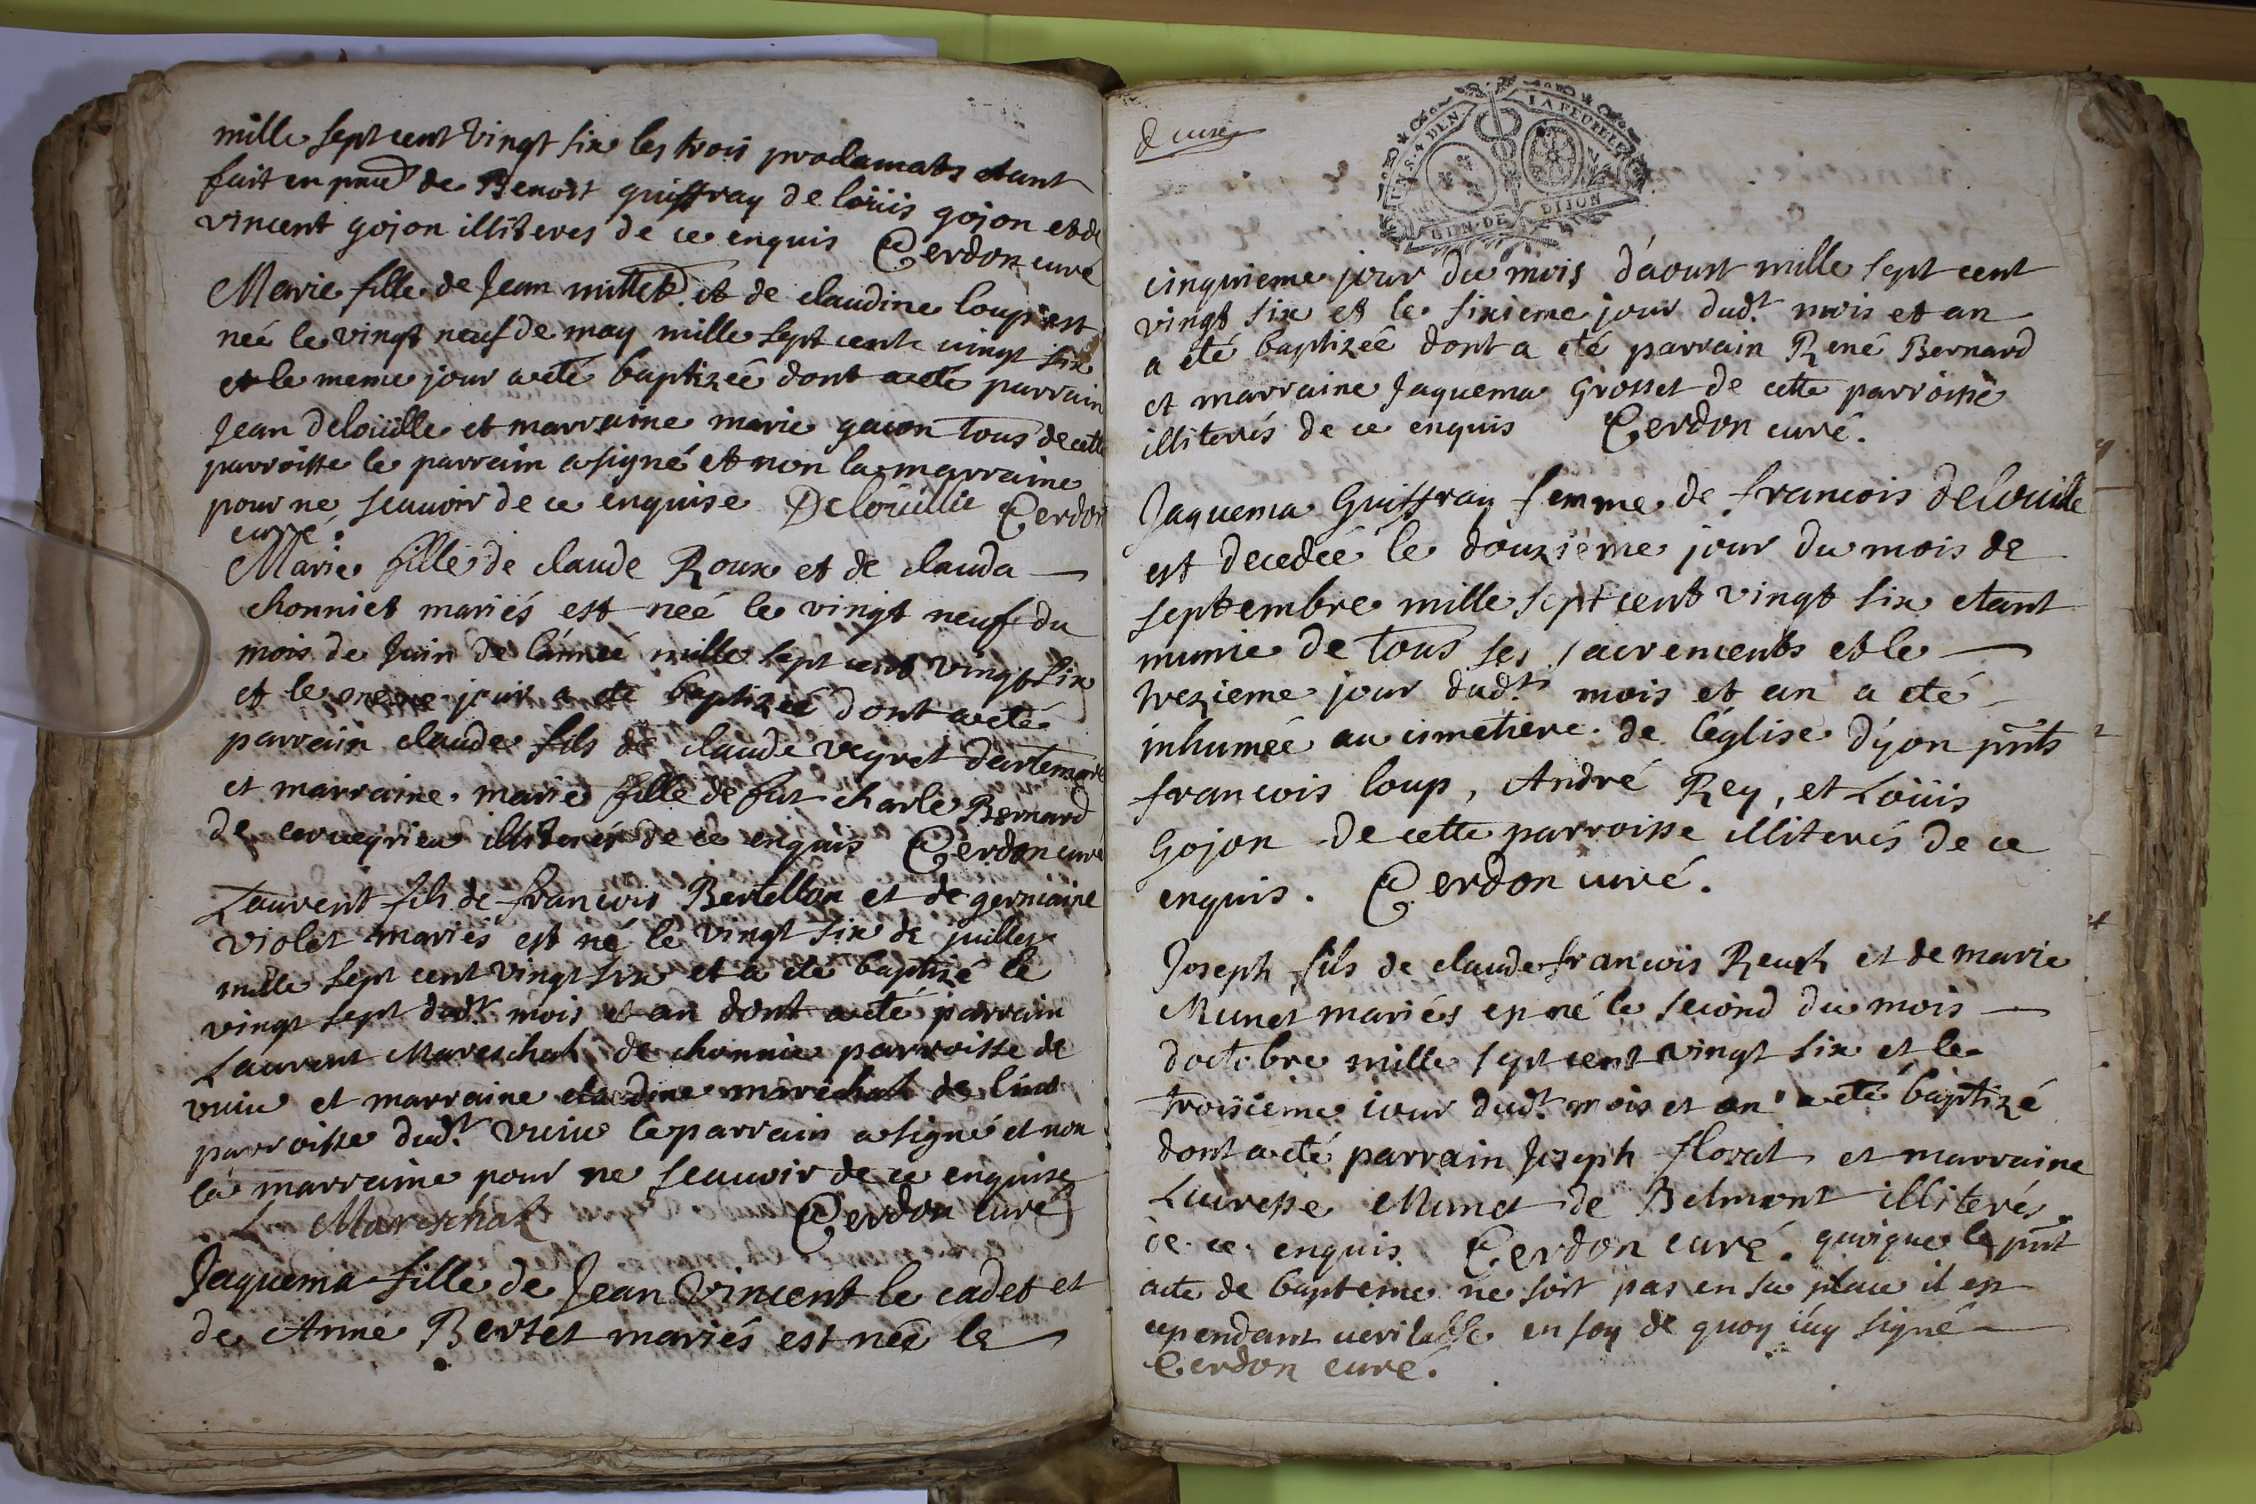 mille sept cent vingt six les trois proclamats etant
fait en pnce de Benoit guiffray de loüis gojon et de
vincent gojon illiteres de ce enquis Cerdon curé
Marie fille de Jean mittet et de claudine loup est
neé le vingt neuf de may mille sept cent vingt six
et le meme jour a eté baptizeé dont a eté parrain
Jean deloüille et marraine marie gacon tous de cette
parroisse le parrain a signé et non la marraine
pour ne scauoir de ce enquise Deloüille Cerdon
curé.
Marie fille de claude Roux et de clauda
chonniet mariés est neé le vingt neuf du
mois de Juin de l'anneé mille sept cent vingt six
et le meme jour a eté baptizeé dont a eté
parrain claude fils de claude veyret d'artemare
et marraine marie fille de fut charle Bernard
de cerueyrieu illiterés de ce enquis Cerdon curé
Laurent fils de francois Bertellon et de germaine
violet mariés est né le vingt six de juillet
mille sept cent vingt six et a eté baptizé le
vingt sept dudt mois et an dont a eté parrain
Laurent Mareschal de chonnie parroisse de
vuiu et marraine claudine maréchal de
parroisse dudt vuiu le parrain a signé et non
la marraine pour ne scauoir de ce enquise
L Mareschal Cerdon curé
Jaquema fille de Jean Vincent le cadet et
de Anne Bertet mariés est neé le
GEN. DE DIJON
cinquieme jour du mois d'aoust mille sept cent
vingt six et le sixieme jour dudt mois et an
a eté baptizeé dont a eté parrain René Bernard
et marraine Jaquema Grosset de cette parroisse
illiterés de ce enquis Cerdon curé.
Jaquema Guiffray femme de francois delouille
est decedeé le douzieme jour du mois de
septembre mille sept cent vingt six etant
munie de tous ses sacrements et le
trezieme jour dudt mois et an a eté
inhumeé au cimetiere de l'église d'yon pnts
francois loup, André Rey, et Loüis
Gojon de cette parroisse illiterés de ce
enquis. Cerdon curé.
Joseph fils de claude francois et de marie
Munet mariés est né le second du mois
d'octobre mille sept cent vingt six et le
troisieme jour dudt mois et an a eté baptizé
dont a eté parrain Joseph florat et marraine
Lucresse Munet de Belmont illiterés
de ce enquis Cerdon curé. quoique le pnt
acte de bapteme ne soit pas en sa place il est
cependant veritable en foy de quoy i'ay signé
Cerdon curé.